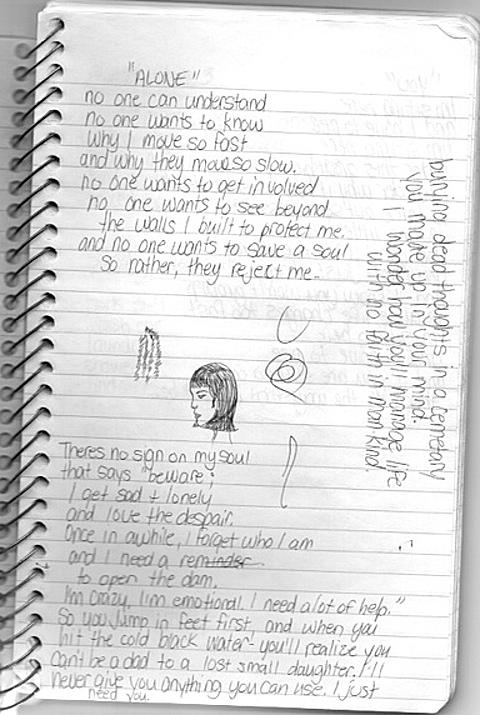 "ALONE"
no one can understand
no one wants to know
why I move so fast
and why they move so slow.
no one wants to get involved
no one wants to see beyond
the walls I built to protect me.
and no one wants to save a soul
so rather, they reject me..
burying dead thoughts in a cemetary
you made up in your mind.
I wonder how you'll manage life
with no faith in man kind.
Theres no sign on my soul
that says "beware;
I get sad + lonely
and love the despair.
Once in awhile, I forget who I am
and I need a reminder
to open the dam.
I'm crazy, I'm emotional. I need a lot of help."
So you jump in feet first, and when you
hit the cold black water- you'll realize you
can't be a dad to a lost small daughter. I'll
never give you anything you can use. I just
need you.